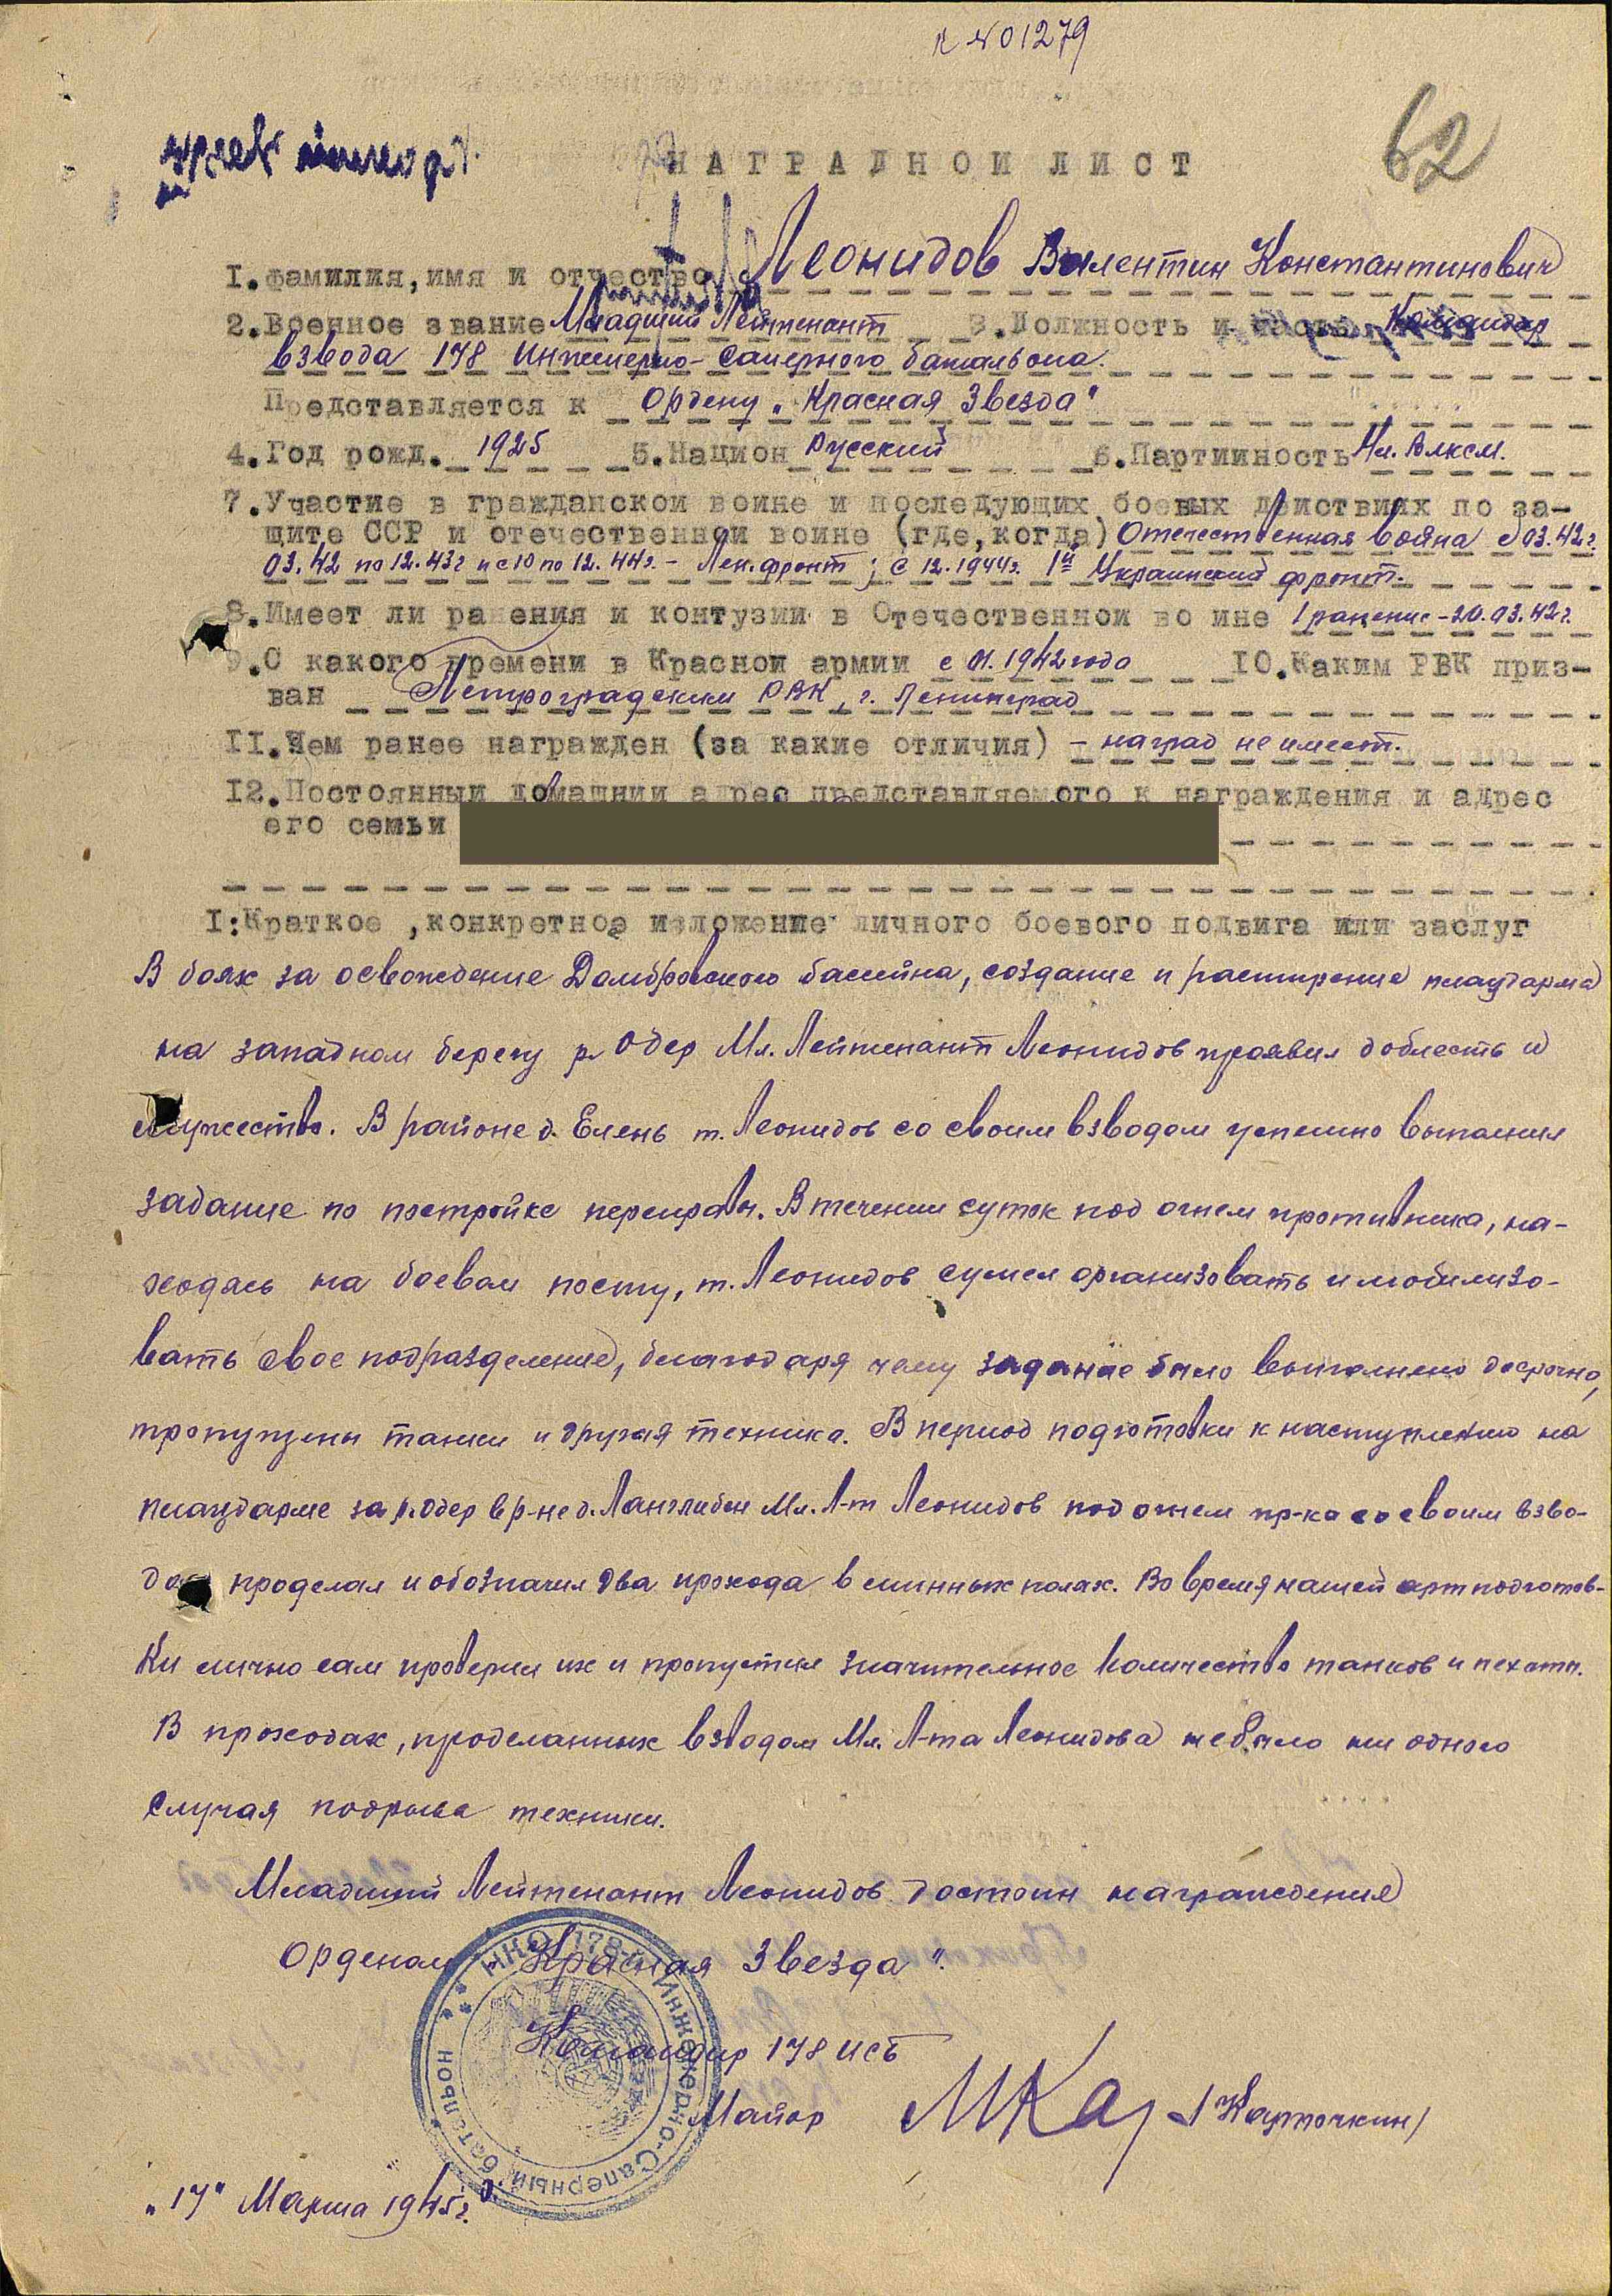 к №01279
62
НАГРАДНОЙ ЛИСТ
1.Фамилия,имя и отчество Леонидов Валентин Константинович
2.Военное звание Младший Лейтенант 3.Должность и часть Командир
взвода 178 Инженерно-Саперного батальона.
Представляется к Ордену „Красная Звезда"
4.Год рожд. 1925 5.Национ Русский 6.Партийность Чл. Влксм.
7.Участие в гражданской воине и последующих боевых действиях по за-
щите ССР и отечественной воине (где,когда) Отечественная война с 03.42г.
03.42 по 12.43г и с 10 по 12.44г. - Лен.фронт; с 12.1944г. 1й Украинский фронт.
8.Имеет ли ранения и контузии в Отечественной во ине 1 ранение - 20.03.42г.
9.С какого времени в Красной армии с 01.1942 года 10.Каким РВК приз-
ван Петроградским РВК, г. Ленинград
11.Чем ранее награжден (за какие отличия) - наград не имеет.
12.Постоянный домашний адрес представляемого к награждения и адрес
его семьи
I:Краткое ,конкретное изложение личного боевого подвига или заслуг
В боях за освождение Домбровского бассейна, создание и расширение плацдарма
на западном берегу р Одер Мл. Лейтенант Леонидов проявил доблесть и
мужество. В районе д. Елень т. Леонидов со своим взводом успешно выполнил
задание по постройке переправы. В течении суток под огнем противника, на-
ходясь на боевом посту, т. Леонидов сумел организовать и мобилизо-
вать свое подразделение, благодаря чему задание было выполнено досрочно,
пропущены танки и другая техника. В период подготовки к наступлению на
плацдарме за р.Одер в р-не д.Ланглибен Мл. Л-т Леонидов под огнем пр-ка со своим взво-
дом проделал и обозначил два прохода в минных полях. Во время нашей артподготов-
ки лично сам проверил их и пропустил значительное количество танков и пехоты.
В проходах, проделанных взводом Мл. Л-та Леонидова не было ни одного
случая подрыва техники.
Младший Лейтенант Леонидов достоин награждения
Орденом „Красная Звезда".
Командир 178 ИСБ
Майор МКар /Карточкин/
НКО 178-й Инженерно-Саперный батальон
„17" Марта 1945г.